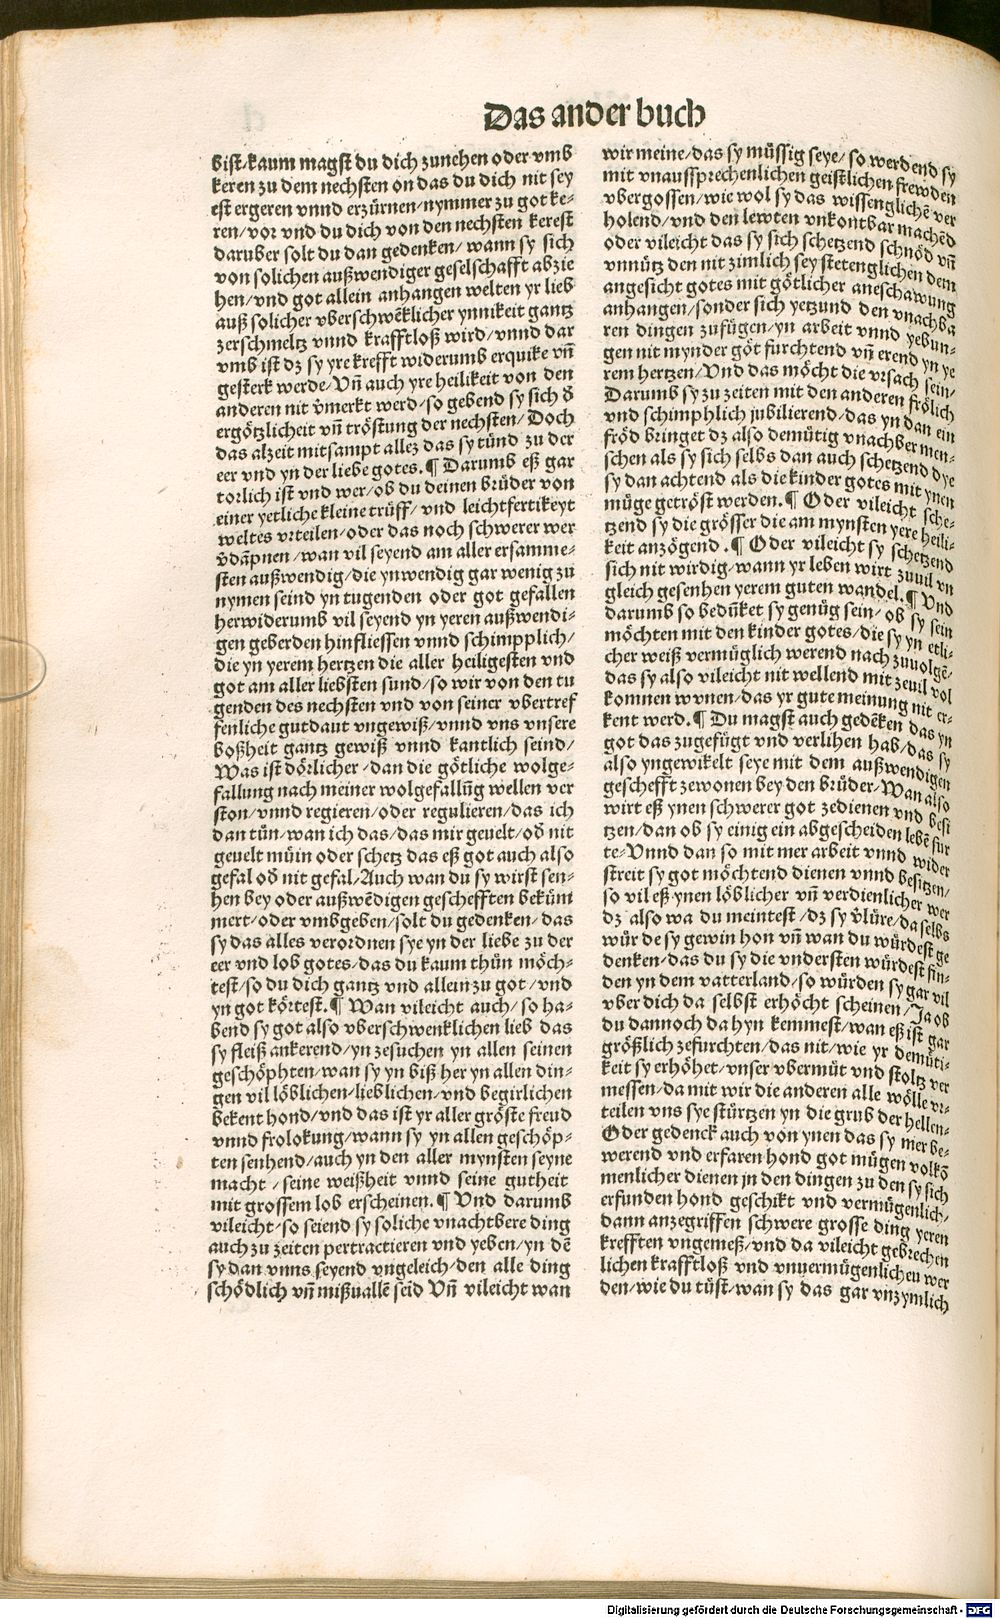 Das ander buch
bist/kaum magst du dich zunehen oder vmb
keren zu dem nechsten on das du dich nit sey
est ergeren vnnd erzürnen/nymmer zu got ke-
ren/vor vnd du dich von den nechsten kerest
daruber solt du dan gedenken/wann sy sich
von solichen außwendiger geselschafft abzie
hen/vnd got allein anhangen welten yr lieb
auß solicher vberschwēklicher ynnikeit gantz
zerschmeltz vnnd krafftloß wird/vnnd dar
vmb ist dz sy yre krefft widerumb erquike vñ
gesterk werde/Vñ auch yre heilikeit von den
anderen nit v̄merkt werd/so gebend sy sich d̄
ergötzlicheit vñ tröstung der nechsten/Doch
das alzeit mitsampt allez das sy tünd zu der
eer vnd yn der liebe gotes.¶ Darumb eß gar
torlich ist vnd wer/ob du deinen brüder von
einer yetliche kleine trüff/vnd leichtfertikeyt
weltes vrteilen/oder das noch schwerer wer
v̄dāpnen/wan vil seyend am aller ersamme-
sten außwendig/die ynwendig gar wenig zu
nymen seind yn tugenden oder got gefallen
herwiderumb vil seyend yn yeren außwendi-
gen geberden hinfliessen vnnd schimpplich/
die yn yerem hertzen die aller heiligesten vnd
got am aller liebsten sund/so wir von den tu
genden des nechsten vnd von seiner vbertref
fenliche gutdaut vngewiß/vnnd vns vnsere
boßheit gantz gewiß vnnd kantlich seind/
Was ist dörlicher/dan die götliche wolge-
fallung nach meiner wolgefallūg wellen ver
ston/vnnd regieren/oder regulieren/das ich
dan tün/wan ich das/das mir geuelt/od̄ nit
geuelt müin oder schetz das eß got auch also
gefal od̄ nit gefal/Auch wan du sy wirst sen-
hen bey oder außwēdigen geschefften bekūm
mert/oder vmbgeben/solt du gedenken/das
sy das alles verordnen sye yn der liebe zu der
eer vnd lob gotes/das du kaum thün möch-
test/so du dich gantz vnd allein zu got/vnd
yn got körtest.¶ Wan vileicht auch/so ha-
bend sy got also vberschwenklichen lieb das
sy fleiß ankerend/yn zesuchen yn allen seinen
geschöphten/wan sy yn biß her yn allen din-
gen vil löblichen/lieblichen/vnd begirlichen
bekent hond/vnd das ist yr aller gröste freud
vnnd frolokung/wann sy yn allen geschöp-
ten senhend/auch yn den aller mynsten seyne
macht/seine weißheit vnnd seine gutheit
mit grossem lob erscheinen.¶ Vnd darumb
vileicht/so seiend sy soliche vnachtbere ding
auch zu zeiten pertractieren vnd yeben/yn dē
sy dan vnns seyend vngeleich/den alle ding
schödlich vñ mißuallē seid Vñ vileicht wan
wir meine/das sy müssig seye/so werdend sy
mit vnaussprechenlichen geistlichen frewden
vbergossen/wie wol sy das wissenglichē ver
holend/vnd den lewten vnkontbar machēd
oder vileicht das sy sich schetzend schnöd vñ
vnnütz den nit zimlich sey stetenglichen dem
angesicht gotes mit götlicher aneschawung
anhangen/sonder sich yetzund den vnachba
ren dingen zufügen/yn arbeit vnnd yebun-
gen nit mynder göt furchtend vñ erend yn ye
rem hertzen/Vnd das möcht die vrsach sein/
Darumb sy zu zeiten mit den anderen frölich
vnd schimphlich jubilierend/das yn dan ein
fröd bringet dz also demütig vnachber men-
schen als sy sich selbs dan auch schetzend dye
sy dan achtend als die kinder gotes mit ynen
müge getröst werden.¶ Oder vileicht sche-
tzend sy die grösser die am mynsten yere heili-
keit anzögend.¶ Oder vileicht sy schetzend
sich nit wirdig/wann yr leben wirt zuuil vn
gleich gesenhen yerem guten wandel.¶ Vnd
darumb so bedūket sy genüg sein/ob sy sein
möchten mit den kinder gotes/die sy yn etli-
cher weiß vermüglich werend nach zuuolgē/
das sy also vileicht nit wellend mit zeuil vol
komnen wvnen/das yr gute meinung nit er-
kent werd.¶ Du magst auch gedēken das yn
got das zugefügt vnd verlihen hab/das sy
also yngewikelt seye mit dem außwendigen
geschefft zewonen bey den brüder/Wan also
wirt eß ynen schwerer got zedienen vnd besi
tzen/dan ob sy einig ein abgescheiden lebē fur
te/Vnnd dan so mit mer arbeit vnnd wider
streit sy got möchtend dienen vnnd besitzen/
so vil eß ynen löblicher vñ verdienlicher wer
dz also wa du meintest/dz sy v̄lüre/da selbs
würde sy gewin hon vñ wan du würdest ge
denken/das du sy die vndersten würdest fin-
den yn dem vatterland/so würden sy gar vil
vber dich da selbst erhöcht scheinen/Ja ob
du dannoch da hyn kemmest/wan eß ist gar
größlich zefurchten/das nit/wie yr demüti-
keit sy erhöhet/vnser vbermüt vnd stoltz ver
messen/da mit wir die anderen alle wölle vr-
teilen vns sye stürtzen yn die grub der hellen-
Oder gedenck auch von ynen das sy mer be-
werend vnd erfaren hond got mügen volkō
menlicher dienen jn den dingen zu den sy sich
erfunden hond geschikt vnd vermügenlich/
dann anzegriffen schwere grosse ding yeren
krefften vngemeß/vnd da vileicht gebrechen
lichen krafftloß vnd vnuermügenlichen wer
den/wie du tüst/wan sy das gar vnzymlich
Digitalisierung gefördert durch die Deutsche Forschungsgemeinschaft - DFG